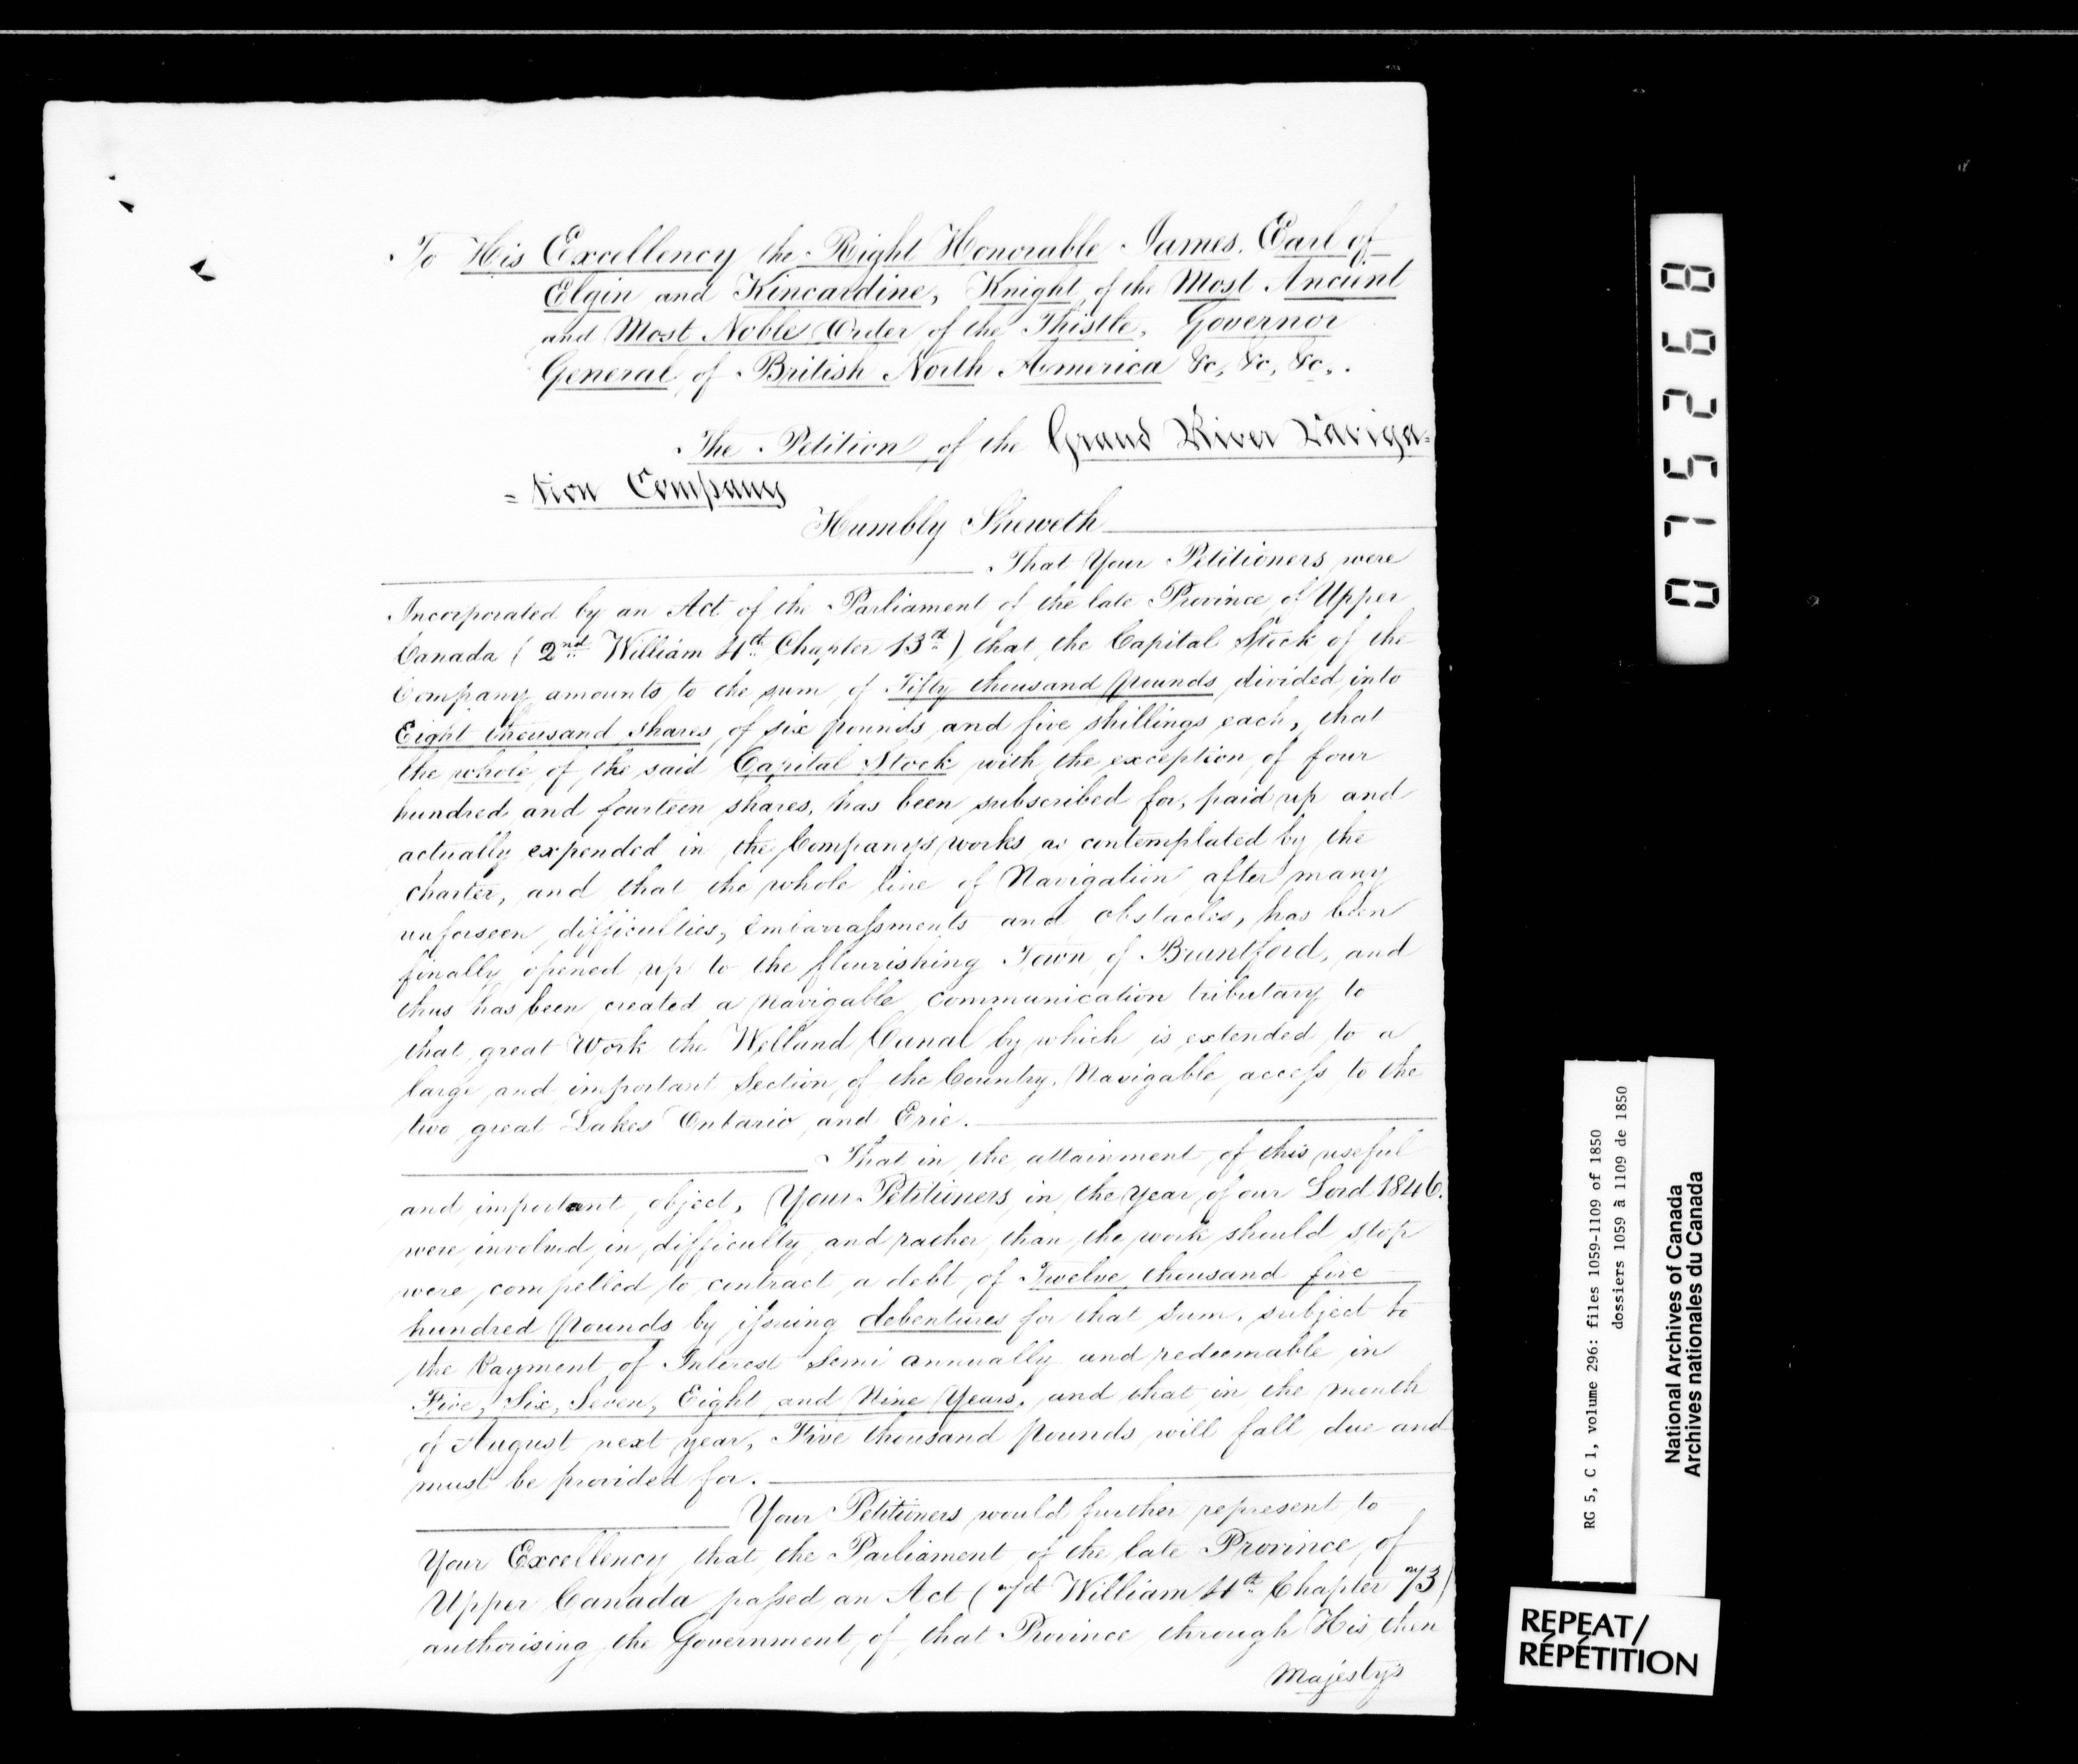 To His Excellency the Right Honorable James, Earl of
Elgin and Kincardine, Knight of the Most Ancient
and Most Noble Order of the Thistle, Governor
General of British North America &c, &c, &c,.
The Petition of the Grand River Naviga=
=tion Company
Humbly Sheweth
That Your Petitioners were
Incorporated by an Act of the Parliament of the late Province of Upper
Canada (2nd William 4th Chapter 13th) that the Capital Stock of the
Company amounts to the sum of Fifty thousand pounds divided into
Eight thousand shares of six pounds and five shillings each, that
the whole of the said Capital Stock with the exception of four
hundred and fourteen shares, has been subscribed for, paid up and
actually expended in the Company's works as contemplated by the
charter, and that the whole line of Navigation after many
unforseen difficulties, embarrassments and obstacles, has been
finally opened up to the flourishing Town of Brantford, and
thus has been created a navigable communication tributary to
that great Work the Welland Canal by which is extended to a
large and important Section of the Country, Navigable access to the
two great Lakes Ontario and Erie.
That in the attainment of this useful
and important object, Your Petitioners in the year of our Lord 1846.
were involved in difficulty and rather than the work should stop
were compelled to contract a debt of Twelve thousand five
hundred pounds by issuing debentures for that sum, subject to
the Payment of Interest Semi annually and redeemable in
Five, Six, Seven, Eight and Nine Years, and that in the month
of August next year, Five thousand pounds will fall due and
must be provided for.
Your Petitioners would further represent to
Your Excellency that the Parliament of the late Province of
Upper Canada passed an Act (7th William 4th Chapter 73)
authorising the Government of that Province through His then
Majesty's
075268
RG 5, C 1, volume 296: files 1059-1109 of 1850
dossiers 1059 à 1109 de 1850
National Archives of Canada
Archives nationales du Canada
REPEAT/
RÉPÉTITION